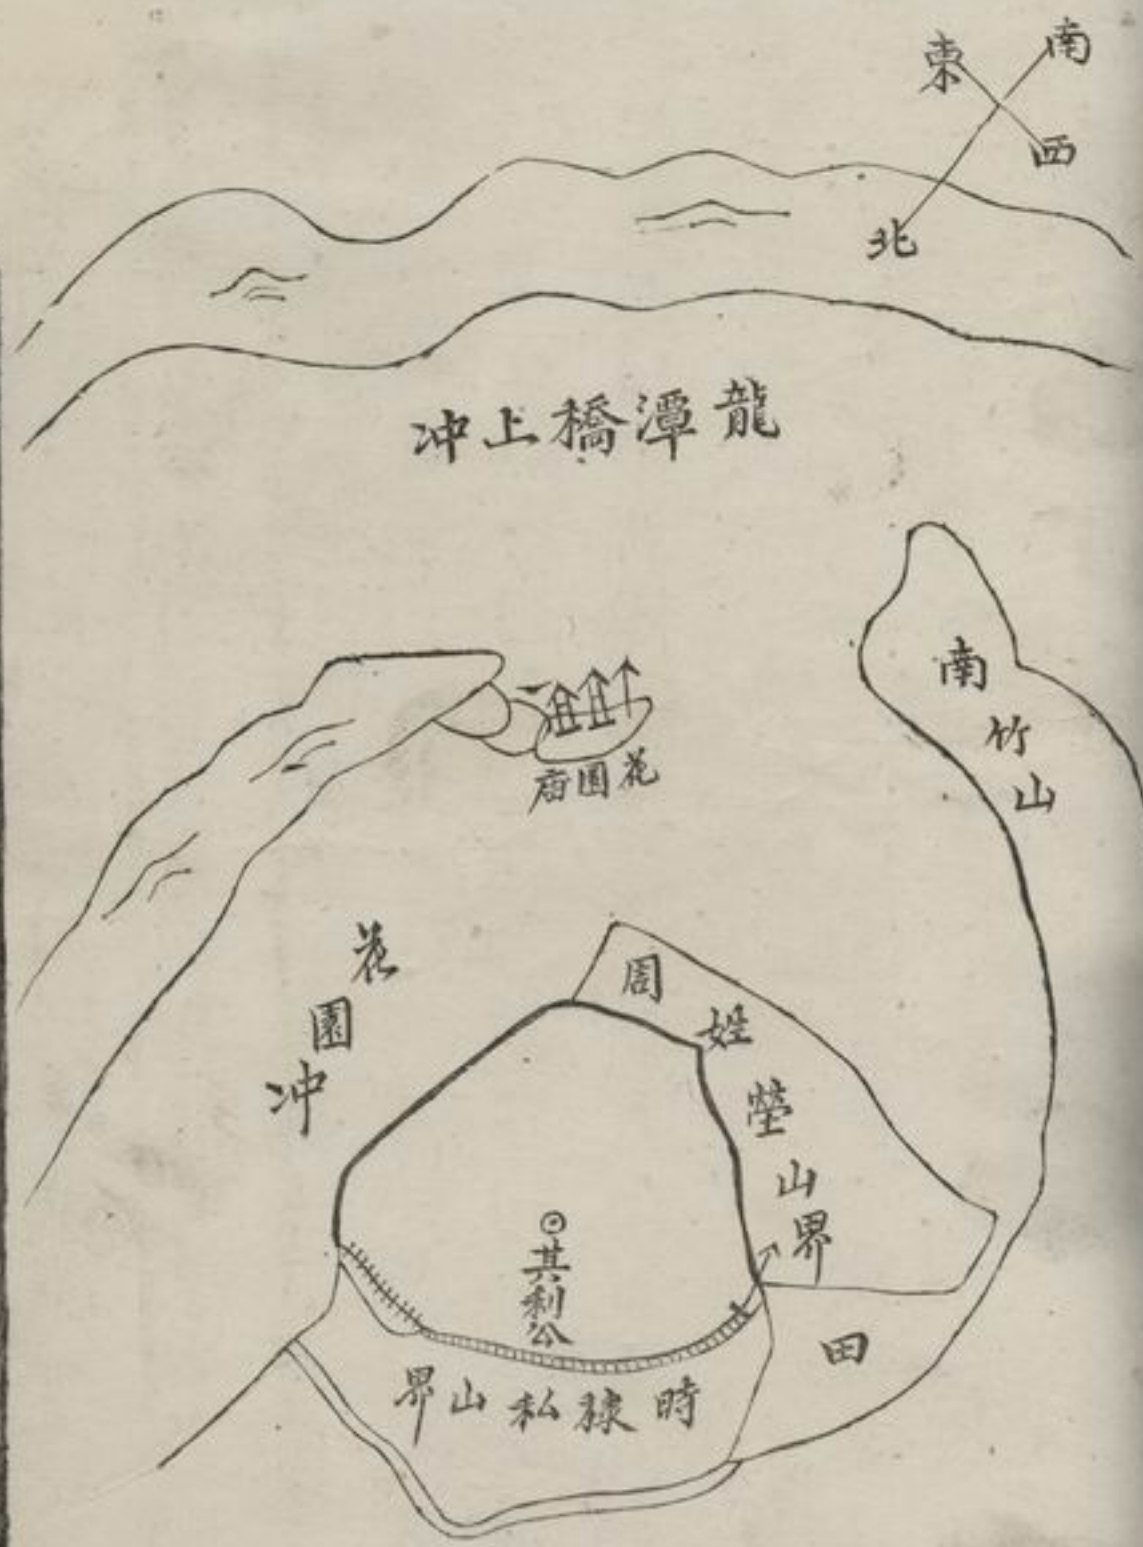 南
東
西
北
龍潭橋上冲
南竹山
花園庙
花園冲
周姓塋山界
共利公
田
時祿私山界